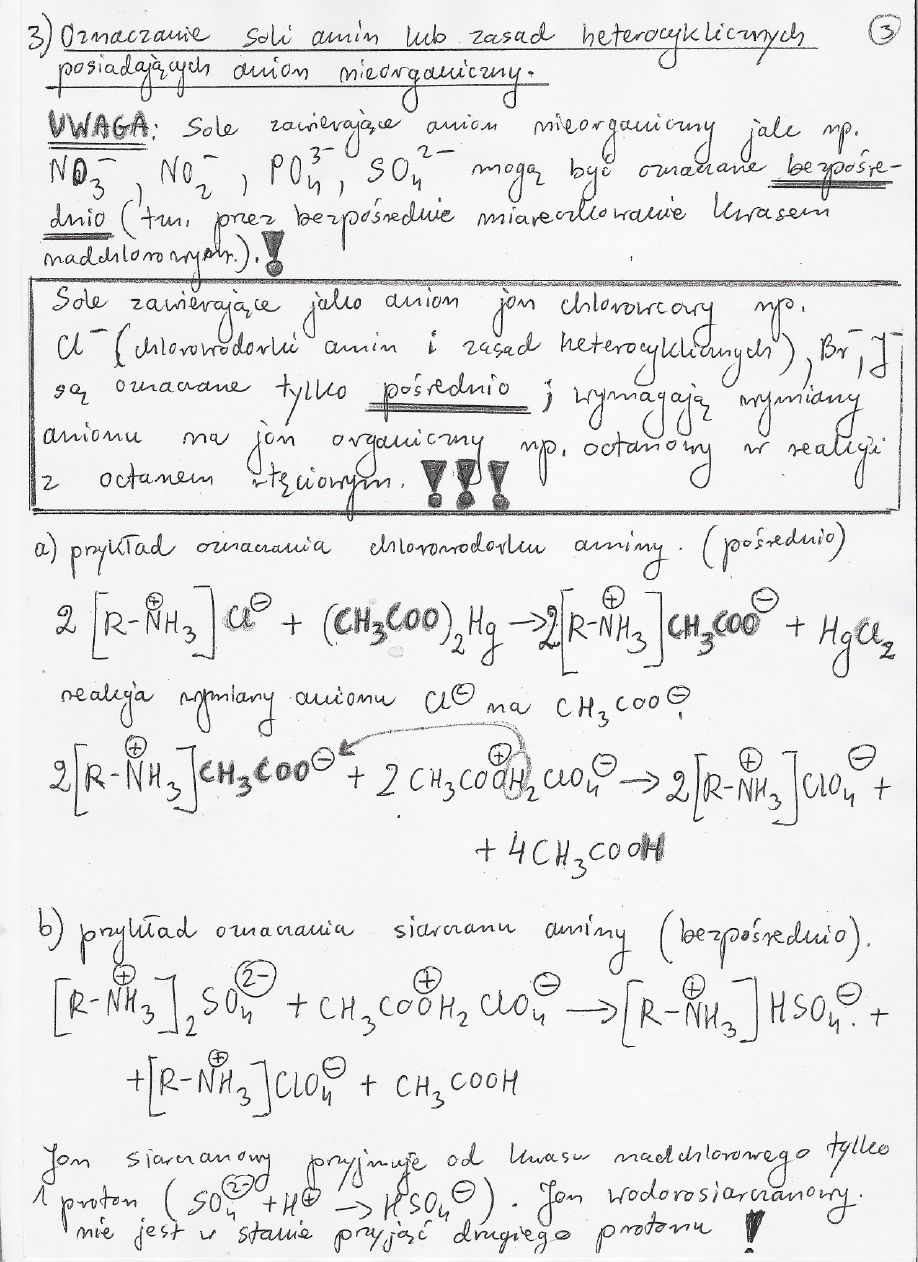 3) Oznaczanie soli amin lub zasad heterocyklicznych ③
posiadających anion nieorganiczny.
UWAGA: Sole zawierające anion nieorganiczny jak np.
NO₃⁻, NO₂⁻, PO₄³⁻, SO₄²⁻ mogą być oznaczane bezpośre-
dnio (tzn. przez bezpośrednie miareczkowanie kwasem
nadchlorowym.).!
Sole zawierające jako anion jon chlorowcowy np.
Cl⁻ (chlorowodorki amin i zasad heterocyklicznych), Br⁻, J⁻
są oznaczane tylko pośrednio i wymagają wymiany
anionu na jon organiczny np. octanowy w reakcji
z octanem rtęciowym. !!!
a) przykład oznaczania chlorowodorku aminy. (pośrednio)
2 [R-NH₃]⊕ Cl⊖ + (CH₃COO)₂Hg → 2[R-NH₃]⊕ CH₃COO⊖ + HgCl₂
reakcja wymiany anionu Cl⊖ na CH₃COO⊖.
2[R-NH₃]⊕ CH₃COO⊖ + 2 CH₃COOH₂⊕ ClO₄⊖ → 2[R-NH₃]⊕ ClO₄⊖ +
+ 4CH₃COOH
b) przykład oznaczania siarczanu aminy (bezpośrednio).
[R-NH₃]⊕₂ SO₄²⁻ + CH₃COOH₂⊕ ClO₄⊖ → [R-NH₃]⊕ HSO₄⊖ +
+ [R-NH₃]⊕ ClO₄⊖ + CH₃COOH
Jon siarczanowy przyjmuje od kwasu nadchlorowego tylko
1 proton (SO₄²⁻ + H⊕ → HSO₄⊖). Jon wodorosiarczanowy.
nie jest w stanie przyjąć drugiego protonu !